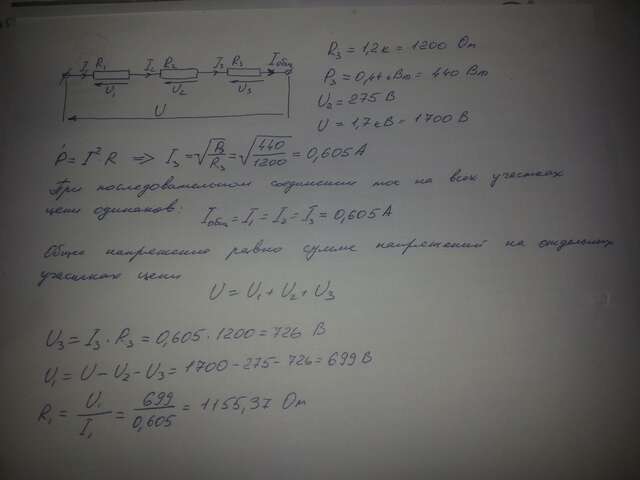 I₁ R₁ I₂ R₂ I₃ R₃ Iобщ
U₁ U₂ U₃
U
R₃ = 1,2к = 1200 Ом
P₃ = 0,44кВт = 440 Вт
U₂ = 275 В
U = 1,7кВ = 1700 В
P = I² · R => I₃ = √(P₃/R₃) = √(440/1200) = 0,605 А
При последовательном соединении ток на всех участках
цепи одинаков: Iобщ = I₁ = I₂ = I₃ = 0,605 А
Общее напряжение равно сумме напряжений на отдельных
участках цепи
U = U₁ + U₂ + U₃
U₃ = I₃ · R₃ = 0,605 · 1200 = 726 В
U₁ = U - U₂ - U₃ = 1700 - 275 - 726 = 699 В
R₁ = U₁/I₁ = 699/0,605 = 1155,37 Ом